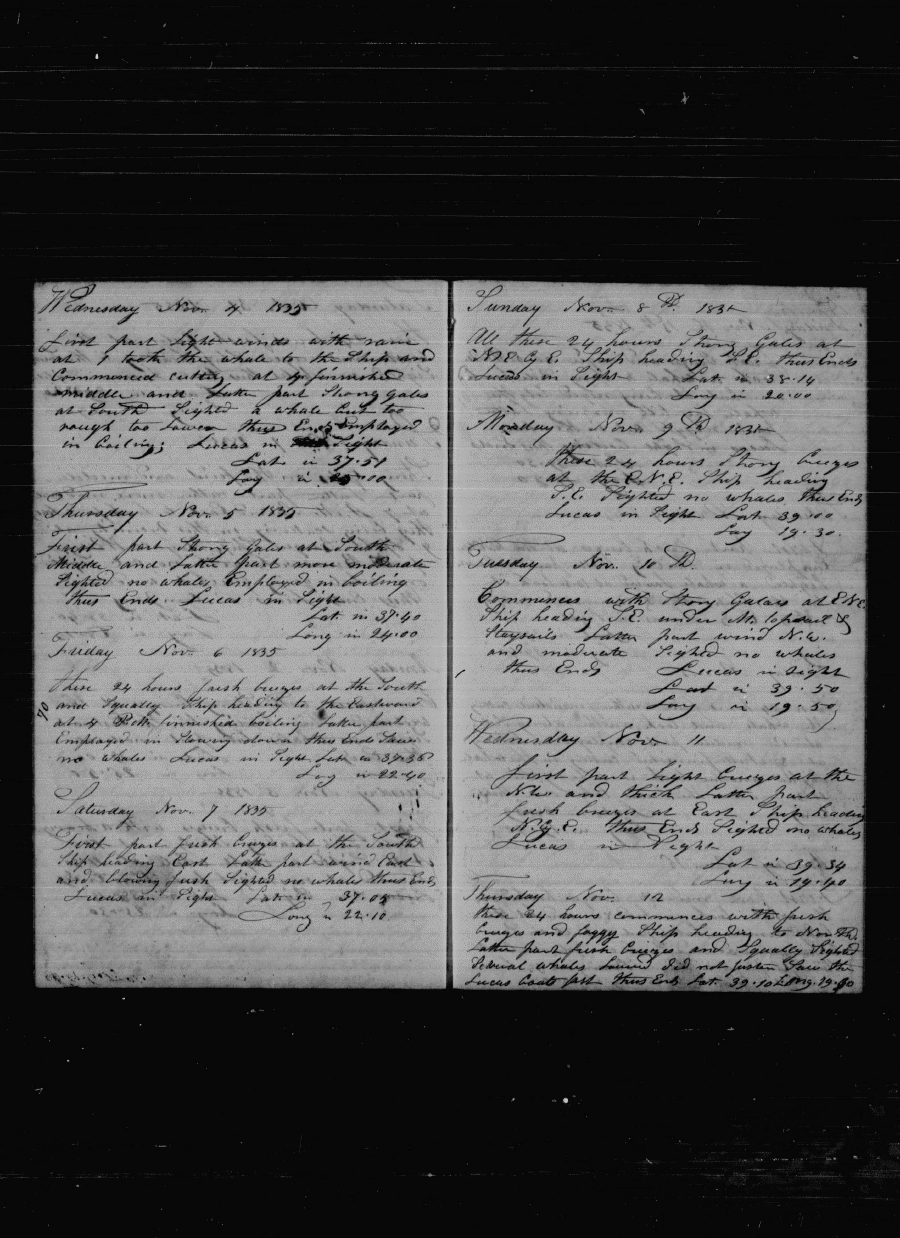 Wednesday Nov. 4 1835
First part light winds with rain
at 1 took the whale to the Ship and
Commenced cutting at 4 finnished
middle and Latter part Strong gales
at South Sighted a whale but too
rough too Lower thus Ends Employed
in boiling; Lucas in Sight
Lat in 37.51
Long in 25.00
Thursday Nov. 5 1835
First part Strong Gales at South
Middle and Latter part more moderate
Sighted no whales Employed in boiling
thus Ends Lucas in Sight
Lat in 37.40
Long in 24.00
Friday Nov. 6 1835
70
these 24 hours fresh breezes at the South
and Squally Ship heading to the Eastward
at 4 finnished boiling Latter part
Employed in Stowing down thus Ends Saw
no whales Lucas in Sight Lat in 37.35
Long in 22.40
Saturday Nov. 7 1835
First part fresh breezes at the South
Ship heading East Latter part wind East
and blowing fresh Sighted no whales thus Ends
Lucas in Sight Lat in 37.05
Long in 22.10
Sunday Nov. 8 Th. 1835
All these 24 hours Strong Gales at
Ship heading S.E. thus Ends
Lucas in Sight Lat in 38.14
Long in 20.00
Monday Nov. 9 Th 1835
These 24 hours Strong breezes
at the E.N.E. Ship heading
S.E. Sighted no whales thus Ends
Lucas in Sight Lat 39.00
Long 19.30
Tuesday Nov. 10 Th
Commences with Strong Galars at E.N.E.
Ship heading S.E. under M. topsail &
Staysails Latter part wind N.W.
and moderate Sighted no whales
thus Ends Lucas in Sight
Lat in 39.50
Long in 19.50
Wednesday Nov. 11
First part Light breezes at the
and thick Latter part
fresh breezes at East Ship heading
thus Ends Sighted no whales
Lucas in Sight
Lat in 39.34
Long in 19.40
Thursday Nov. 12
these 24 hours commences with fresh
breezes and foggy Ship heading to North
Latter part fresh breezes and Squally Sighted
Several whales Lowerd did not fasten Saw the
Lucas boats fast thus Ends Lat. 39.10 Long. 19.